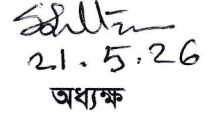 21.5.26
অধ্যক্ষ